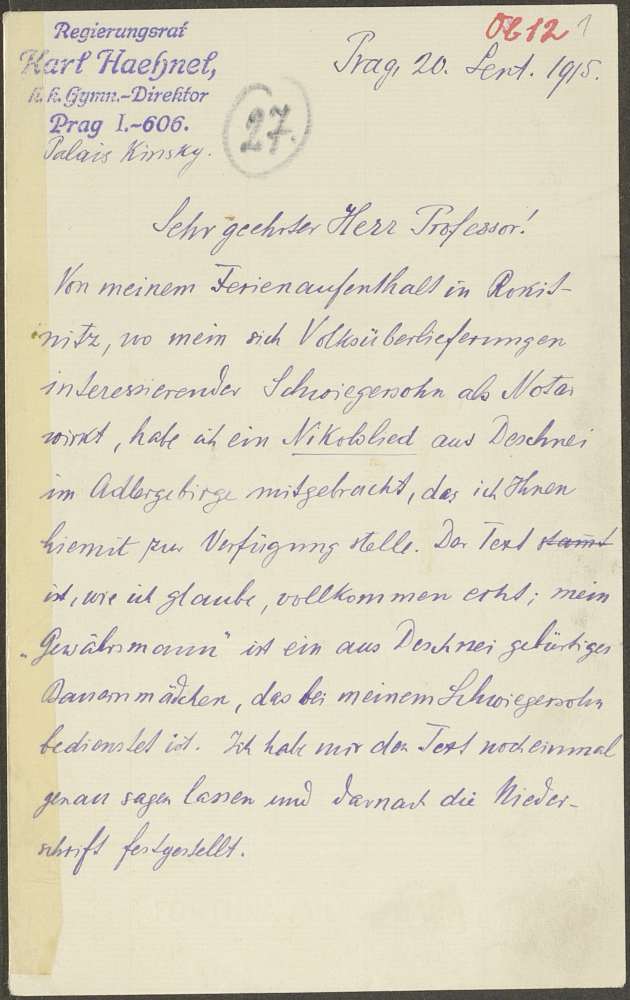 Regierungsrat
Karl Haehnel,
k. k. Gymn.-Direktor
Prag I.-606.
Palais Kinsky.
0612 1
27.
Prag, 20. Sept. 1915.
Sehr geehrter Herr Professor!
Von meinem Ferienaufenthalt in Rokit-
nitz, wo mein sich Volksüberlieferungen
interessierender Schwiegersohn als Notar
wirkt, habe ich ein Nikololied aus Deschnei
im Adlergebirge mitgebracht, das ich Ihnen
hiemit zur Verfügung stelle. Der Text stammt
ist, wie ich glaube, vollkommen echt; mein
„Gewährsmann" ist ein aus Deschnei gebürtiges
Bauernmädchen, das bei meinem Schwiegersohn
bedienstet ist. Ich habe mir den Text noch einmal
genau sagen lassen und darnach die Nieder-
schrift festgestellt.